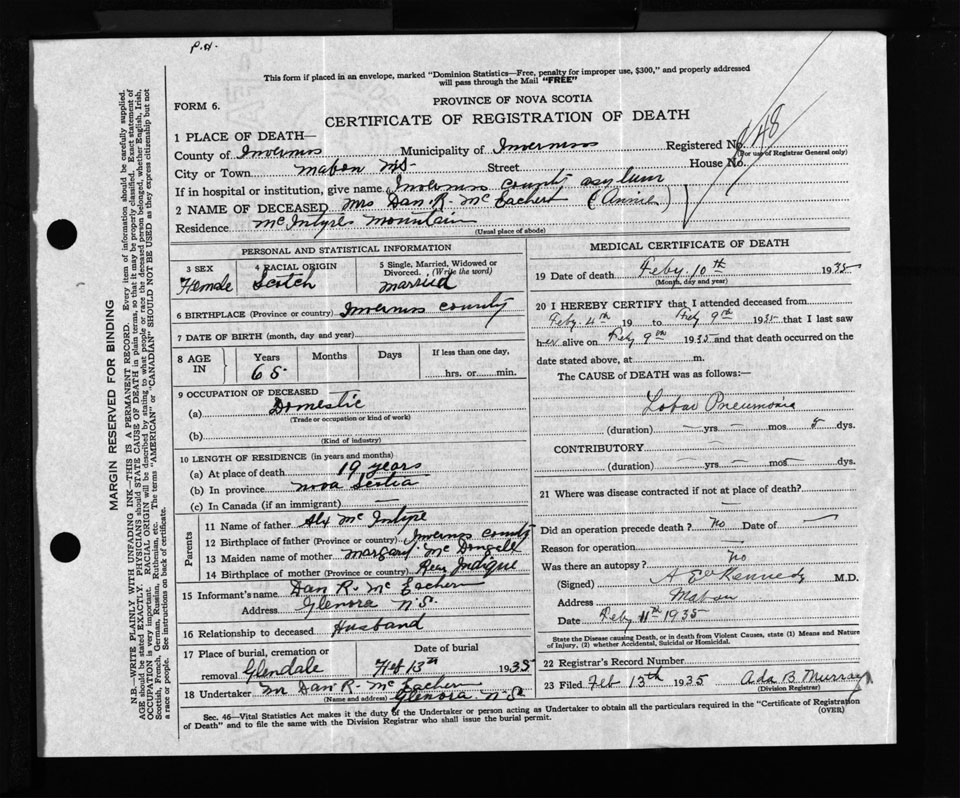 P.H.
This form if placed in an envelope, marked "Dominion Statistics—Free, penalty for improper use, $300," and properly addressed
will pass through the Mail "FREE"
FORM 6.
PROVINCE OF NOVA SCOTIA
CERTIFICATE OF REGISTRATION OF DEATH
1 PLACE OF DEATH—
Registered No. 148
(For use of Registrar General only)
County of Inverness Municipality of Inverness
City or Town Mabou NS. Street House No.
If in hospital or institution, give name (Inverness County asylum
2 NAME OF DECEASED Mrs Dan. R. McEachern (Annie)
Residence McIntyres Mountain
(Usual place of abode)
PERSONAL AND STATISTICAL INFORMATION
3 SEX 4 RACIAL ORIGIN 5 Single, Married, Widowed or
Divorced. (Write the word)
Female Scotch married
6 BIRTHPLACE (Province or country) Inverness County
7 DATE OF BIRTH (month, day and year)
8 AGE IN Years Months Days If less than one day,
65 hrs. or min.
9 OCCUPATION OF DECEASED
(a) Domestic
(Trade or occupation or kind of work)
(b)
(Kind of industry)
10 LENGTH OF RESIDENCE (in years and months)
(a) At place of death 19 years
(b) In province Nova Scotia
(c) In Canada (if an immigrant) —
Parents
11 Name of father Alx McIntyre
12 Birthplace of father (Province or country) Inverness County
13 Maiden name of mother Margary McDougall
14 Birthplace of mother (Province or country) Rear Judique
15 Informant's name Dan R. McEachern
Address Glenora N.S.
16 Relationship to deceased Husband
17 Place of burial, cremation or Date of burial
removal Glendale Feb 13th 1935
18 Undertaker Mr Dan R McEachern
(Name and address) Glenora N.S.
MEDICAL CERTIFICATE OF DEATH
19 Date of death Feby. 10th 1935
(Month, day and year)
20 I HEREBY CERTIFY that I attended deceased from
Feby 4th 19 to Feby 9th 1935 that I last saw
her alive on Feby 9th 1935 and that death occurred on the
date stated above, at m.
The CAUSE of DEATH was as follows:—
Lobar Pneumonia
(duration) — yrs — mos 5 dys.
CONTRIBUTORY —
(duration) — yrs. — mos — dys.
21 Where was disease contracted if not at place of death?
—
Did an operation precede death? no Date of —
Reason for operation —
Was there an autopsy? no
(Signed) Kennedy M.D.
Address Mabou
Date Feby 11th 1935
State the Disease causing Death, or in death from Violent Causes, state (1) Means and Nature
of Injury, (2) whether Accidental, Suicidal or Homicidal.
22 Registrar's Record Number
23 Filed Feb 13th 1935 Ada B Murray
(Division Registrar)
(OVER)
Sec. 46—Vital Statistics Act makes it the duty of the Undertaker or person acting as Undertaker to obtain all the particulars required in the "Certificate of Registration
of Death" and to file the same with the Division Registrar who shall issue the burial permit.
MARGIN RESERVED FOR BINDING
N.B.—WRITE PLAINLY WITH UNFADING INK—THIS IS A PERMANENT RECORD. Every item of information should be carefully supplied.
AGE should be stated EXACTLY. PHYSICIANS should STATE CAUSE OF DEATH in plain terms, so that it may be properly classified. Exact statement of
OCCUPATION is very important. RACIAL ORIGIN will be described by stating to what people or race the deceased person belonged, whether English, Irish,
Scottish, French, German, Russian, Ruthenian, etc. The terms "AMERICAN" or "CANADIAN" SHOULD NOT BE USED as they express citizenship but not
a race or people. See instructions on back of certificate.